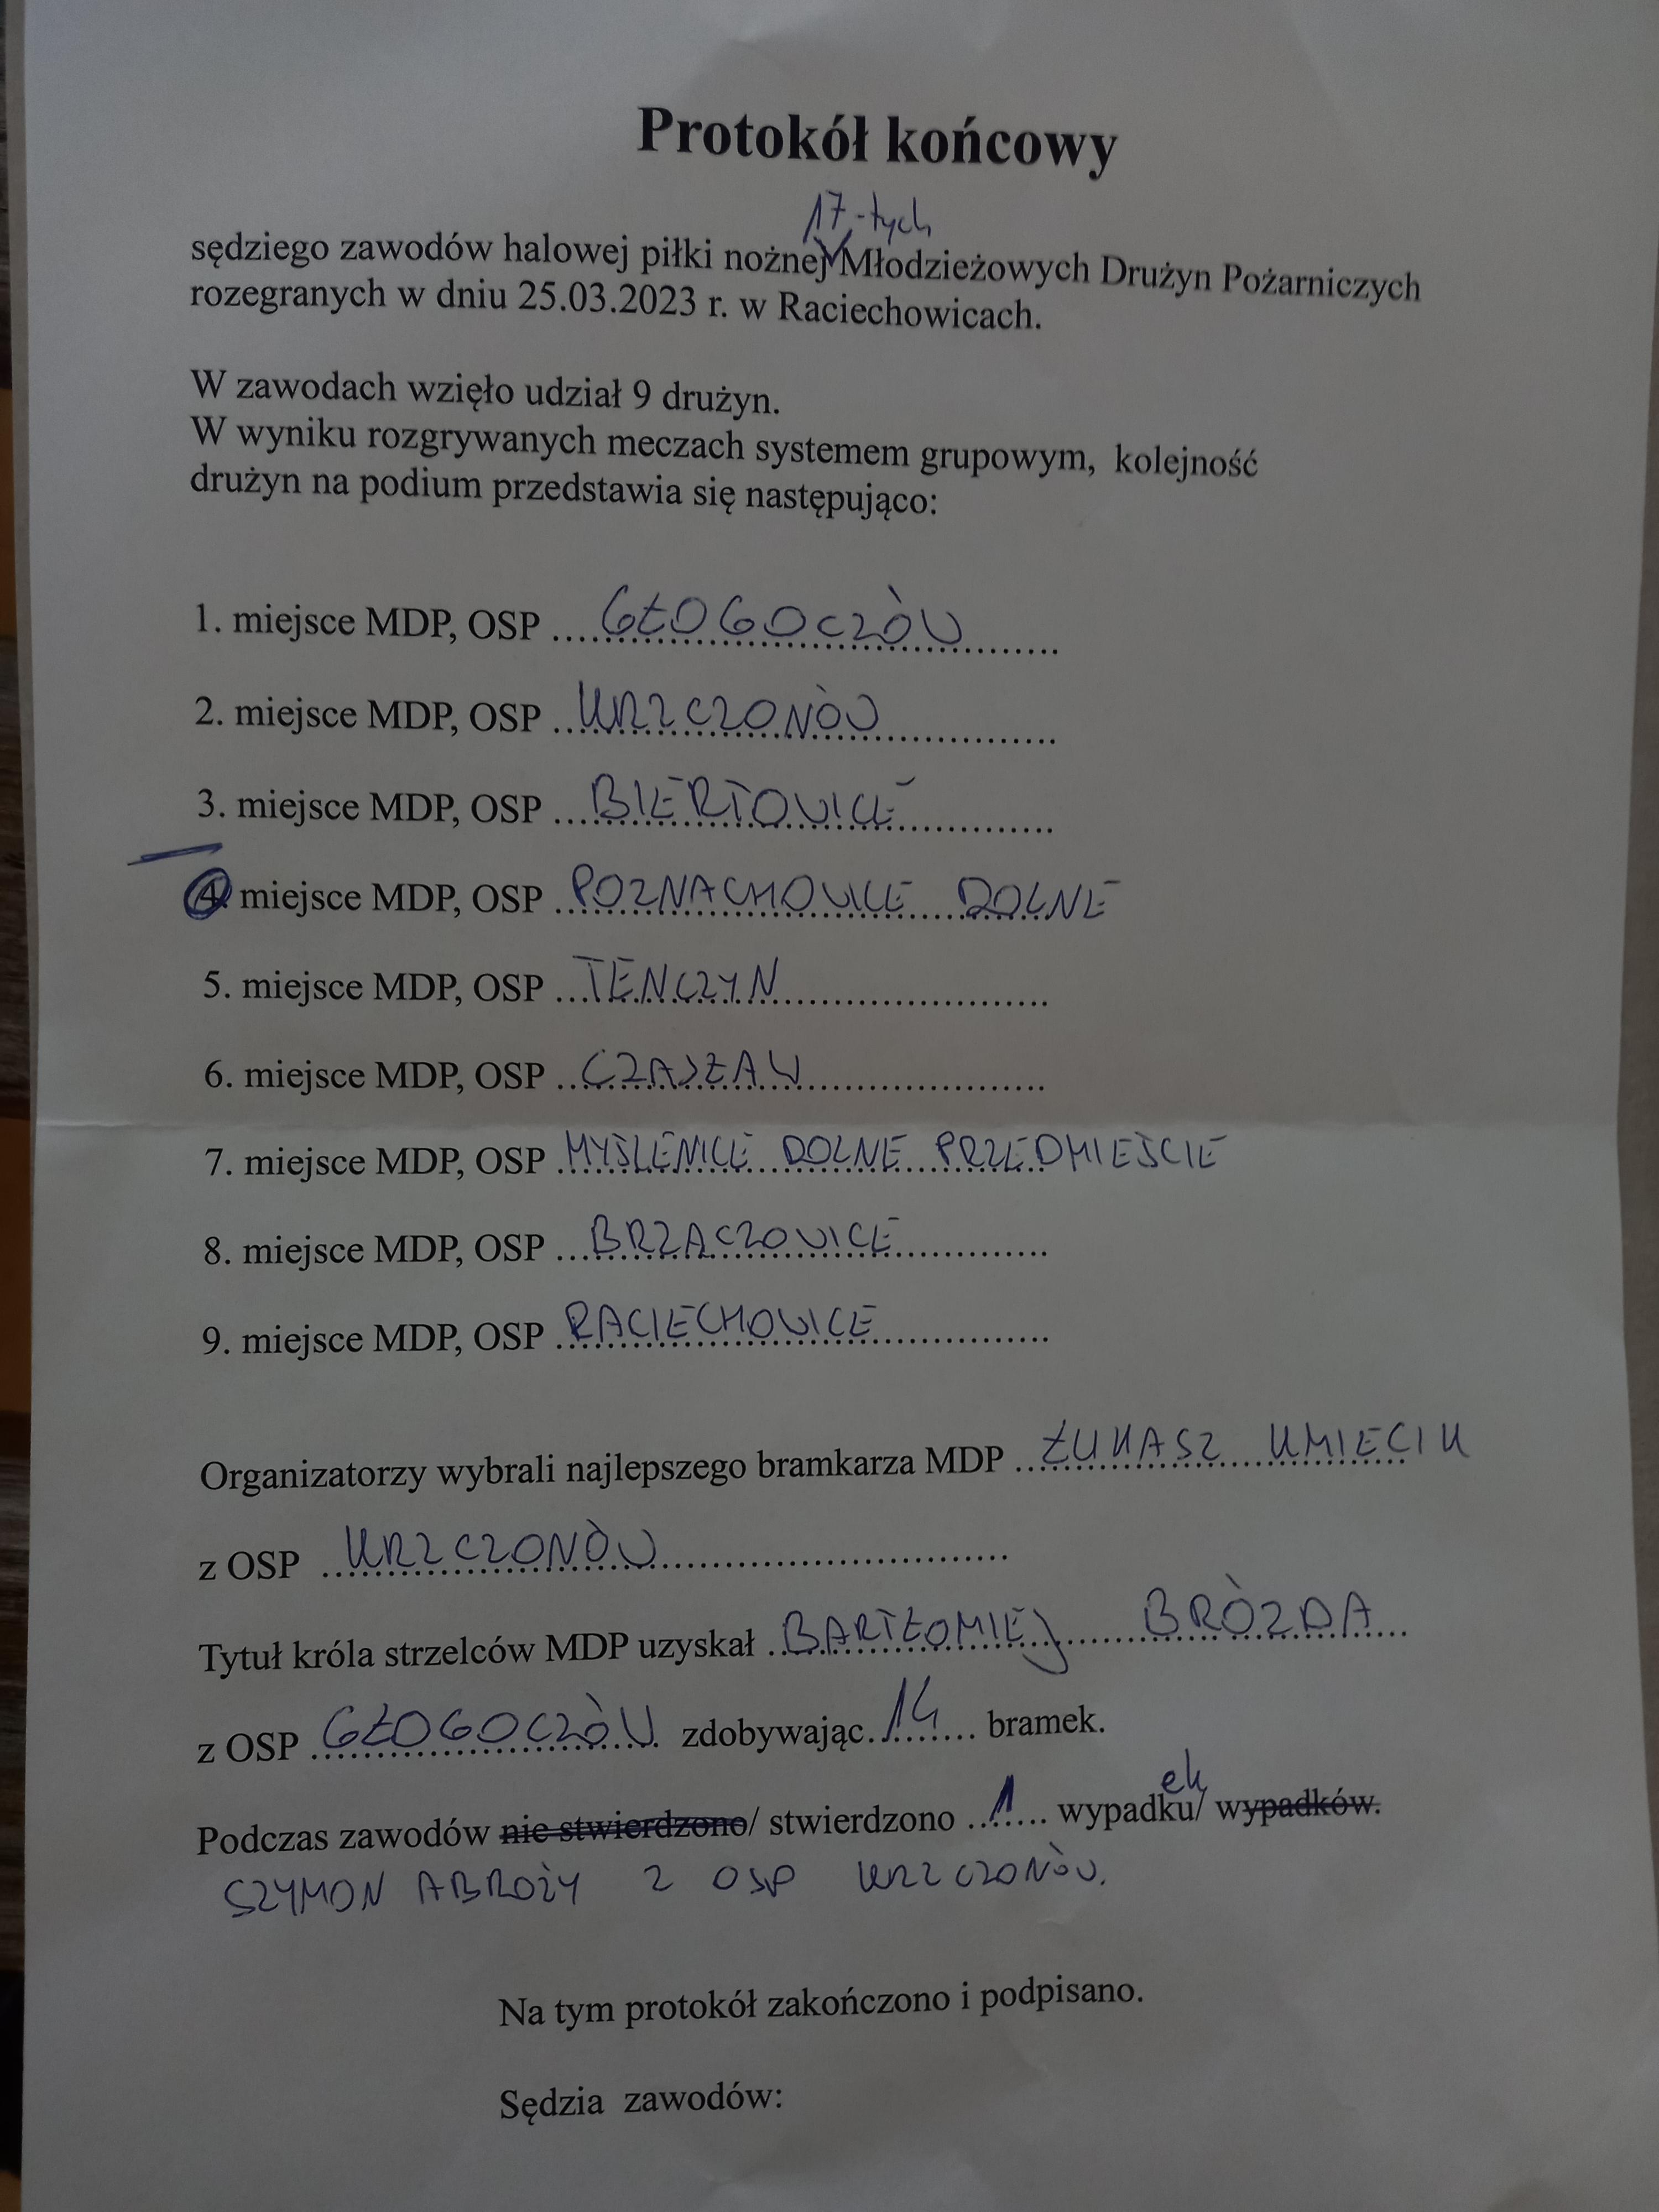 Protokół końcowy
17-tych
sędziego zawodów halowej piłki nożnej Młodzieżowych Drużyn Pożarniczych
rozegranych w dniu 25.03.2023 r. w Raciechowicach.
W zawodach wzięło udział 9 drużyn.
W wyniku rozgrywanych meczach systemem grupowym, kolejność
drużyn na podium przedstawia się następująco:
1. miejsce MDP, OSP ....GŁOGOCZÓW........
2. miejsce MDP, OSP ..KRZCZONÓW........
3. miejsce MDP, OSP ...BIERTOWICE........
4. miejsce MDP, OSP ..POZNACHOWICE DOLNE
5. miejsce MDP, OSP ...TENCZYN........
6. miejsce MDP, OSP ..CZASŁAW........
7. miejsce MDP, OSP .MYŚLENICE DOLNE PRZEDMIEŚCIE
8. miejsce MDP, OSP ...BRZĄCZOWICE........
9. miejsce MDP, OSP ..RACIECHOWICE........
Organizatorzy wybrali najlepszego bramkarza MDP ..ŁUKASZ KMIECIK
z OSP ..KRZCZONÓW........
Tytuł króla strzelców MDP uzyskał ..BARTŁOMIEJ BRÓZDA..
z OSP ..GŁOGOCZÓW. zdobywając.14.... bramek.
ek
Podczas zawodów nie stwierdzono/ stwierdzono ..1.... wypadku/ wypadków.
SZYMON ABROŻY Z OSP KRZCZONÓW.
Na tym protokół zakończono i podpisano.
Sędzia zawodów: